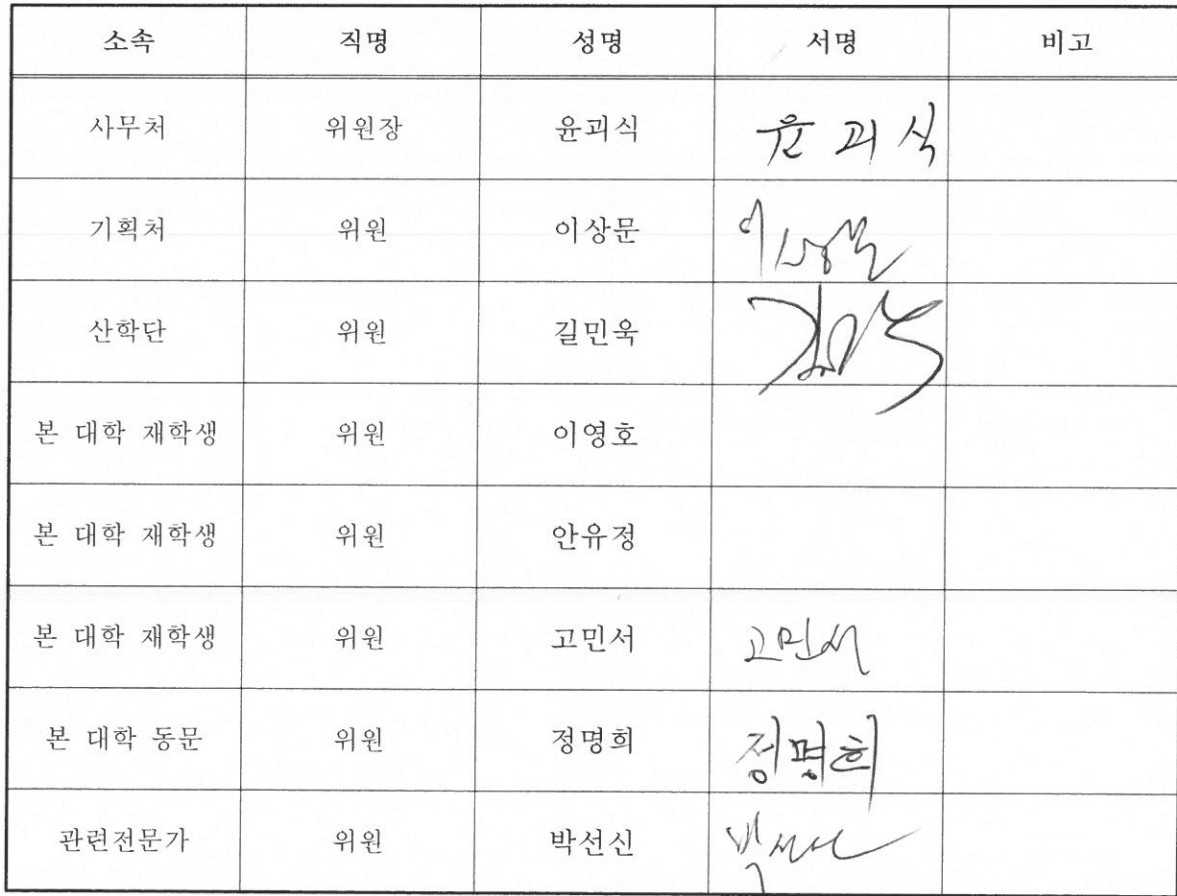 소속 직명 성명 서명 비고
사무처 위원장 윤괴식 윤괴식
기획처 위원 이상문 이상문
산학단 위원 길민욱
본 대학 재학생 위원 이영호
본 대학 재학생 위원 안유정
본 대학 재학생 위원 고민서 고민서
본 대학 동문 위원 정명희 정명희
관련전문가 위원 박선신